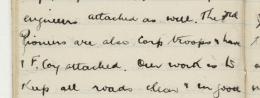 engineers attached as well. The 3rd
Pioneers are also Corp troops & have
1 F. Coy attached. Our work is to
keep all roads clear & in good